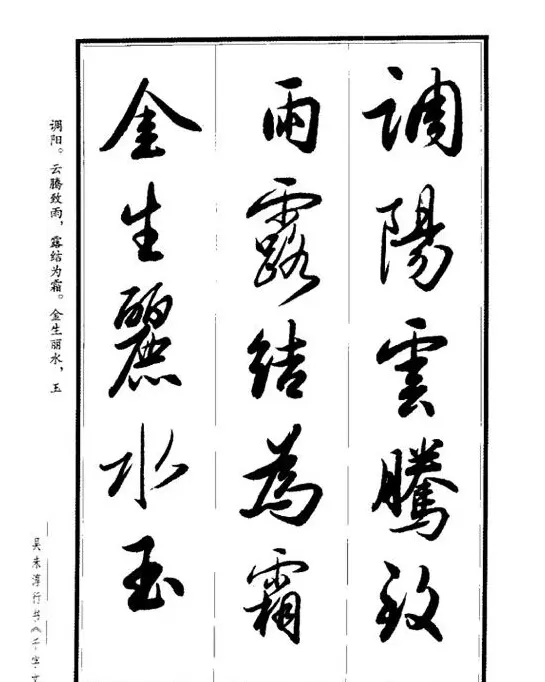 調陽雲騰致
雨露結為霜
金生麗水玉
调阳。云腾致雨，露结为霜。金生丽水，玉
吴未淳行书《千字文